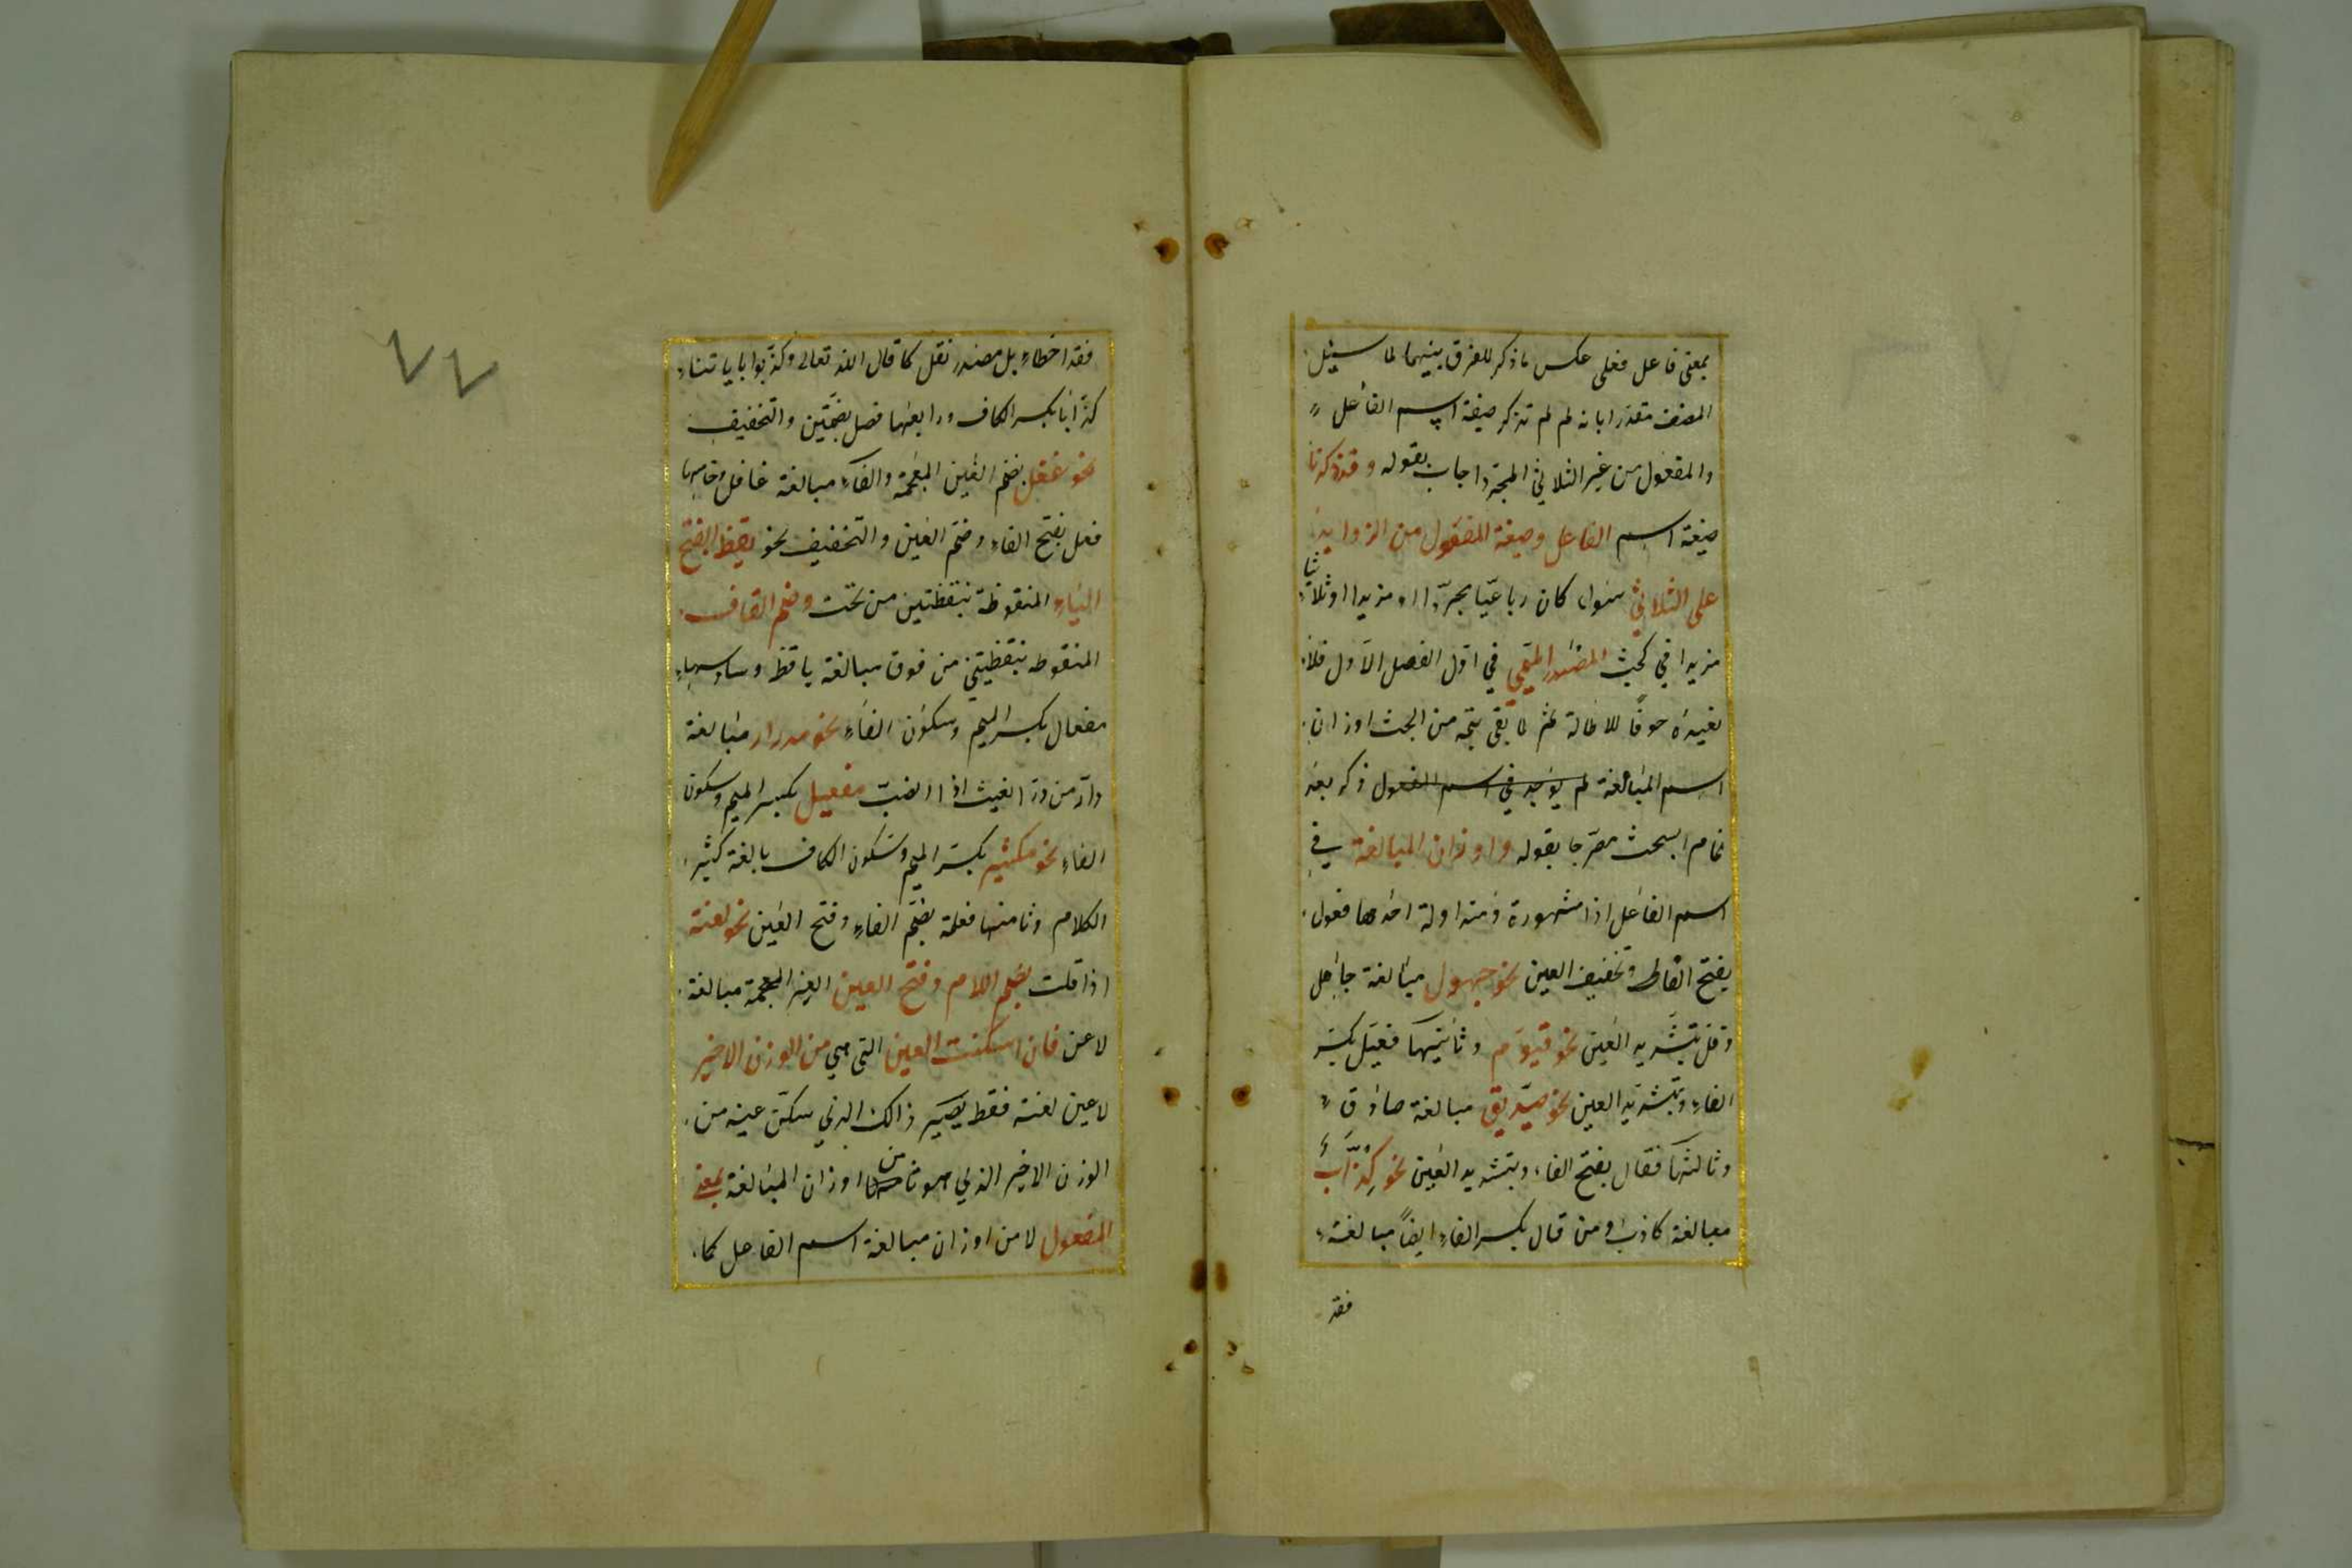 بمعنى فاعل فعلى عكس ما ذكر للفرق بينهما لما سيئل
المصنف مقدرا بانه لم لم تذكر صيغة اسم الفاعل
والمفعول من غير الثلاثي المجرد اجاب بقوله وقد ذكرنا
صيغة اسم الفاعل وصيغة المفعول من الزوايد
على الثلاثي سواء كان رباعيّا مجرّدا او مزيدا او ثلاثيا
مزيدا في بحث المصدر الميمي في اول الفصل الاول فلا
نعيده خوفًا للاطالة ثم لما بقى تتمه من البحث اوزان
اسم المبالغة لم يوجد في اسم المفعول ذكره بعد
تمام البحث مصرّحا بقوله واوزان المبالغة في
اسم الفاعل اذا مشهورة ومتداولة احدها فعول
بفتح الفاء وتخفيف العين نحو جهول مبالغة جاهل
وقل بتشديد العين نحو قيوم وثانيها فعيل بكسر
الفاء وبتشديد العين نحو صدّيق مبالغة صادق
وثالثها فعّال بفتح الفاء وبتشديد العين نحو كذّاب
مبالغة كاذب ومن قال بكسر الفاء ايضًا مبالغة
فقد
٧٧
فقد اخطاء بل مصدر نقل كما قال الله تعالى وكذّبوا باياتنا
كذّابا بكسر الكاف ورابعها فعل بضمّتين والتخفيف
نحو غفل بضم الغين المعجمة والفاء مبالغة غافل وخامسها
فعل بفتح الفاء وضم العين والتخفيف نحو يقظ بفتح
الياء المنقوطة بنقطتين من تحت وضم القاف
المنقوطه بنقطتين من فوق مبالغة ياقظ وسادسها
مفعال بكسر الميم وسكون الفاء نحو مدرار مبالغة
دارّ من درّ الغيث اذا انصبّ مفعيل بكسر الميم وسكون
الفاء نحو مكثير بكسر الميم وسكون الكاف بالغة كثير
الكلام وثامنها فعلة بضم الفاء وفتح العين نحو لعنة
اذا قلت بضم اللام وفتح العين الغير المعجمة مبالغة
لاعن فان اسكنت العين التي هي من الوزن الاخير
لا عين لعنة فقط يصير ذالك الذي سكّن عينه من
الوزن الاخير الذي هو ثامن اوزان المبالغة بمعنى
المفعول لا من اوزان مبالغة اسم الفاعل كما